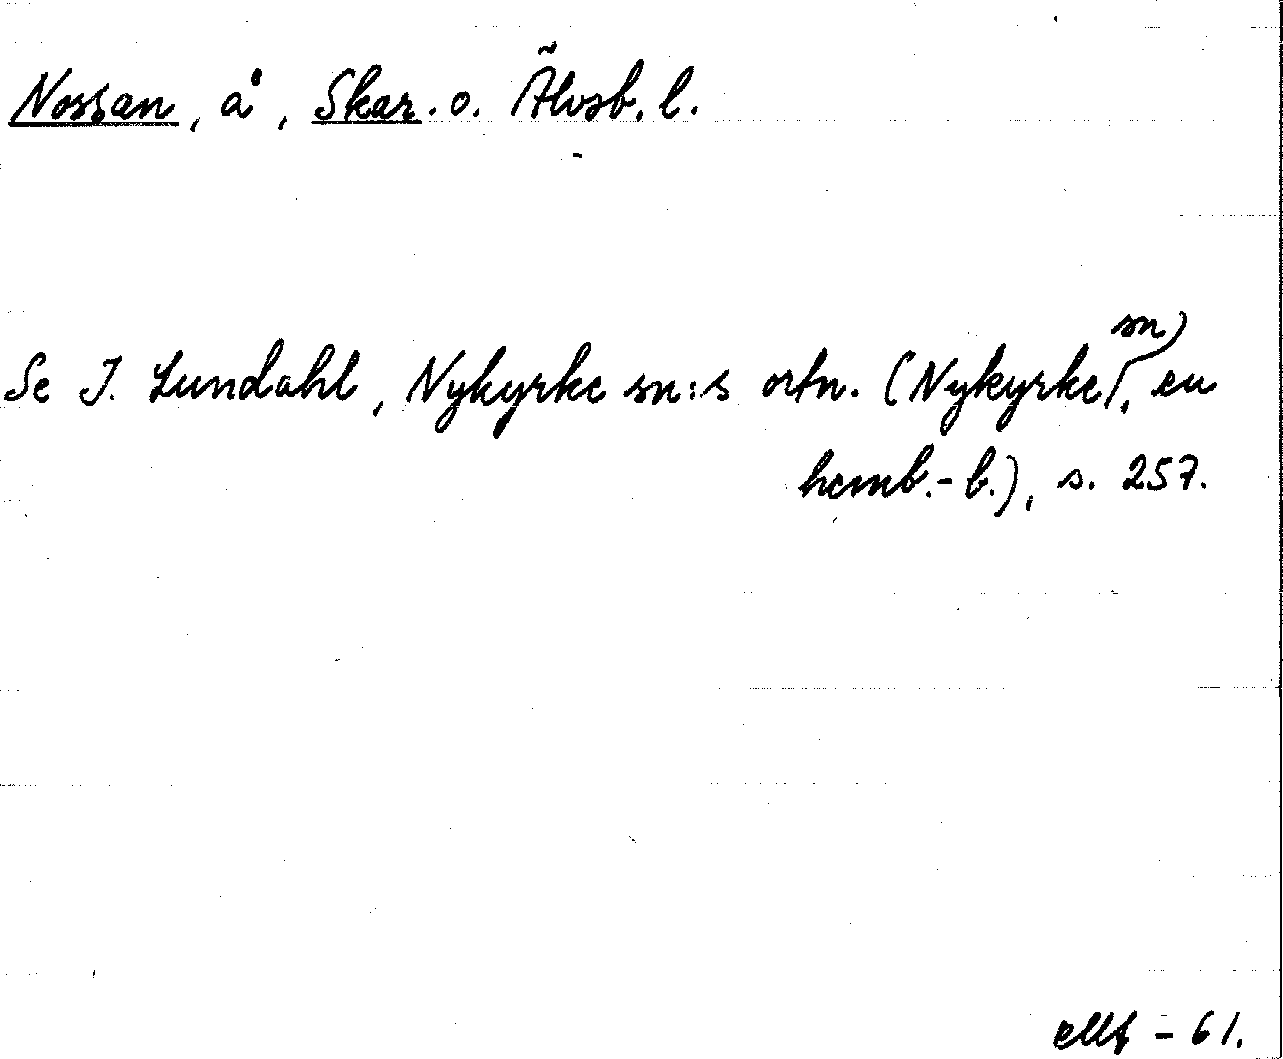 Nossan, å, Skar. o. Älvsb. l.
Se I. Lundahl, Nykyrke sn:s ortn. (Nykyrke sn, en
hemb.-b.), s. 257.
- 61.